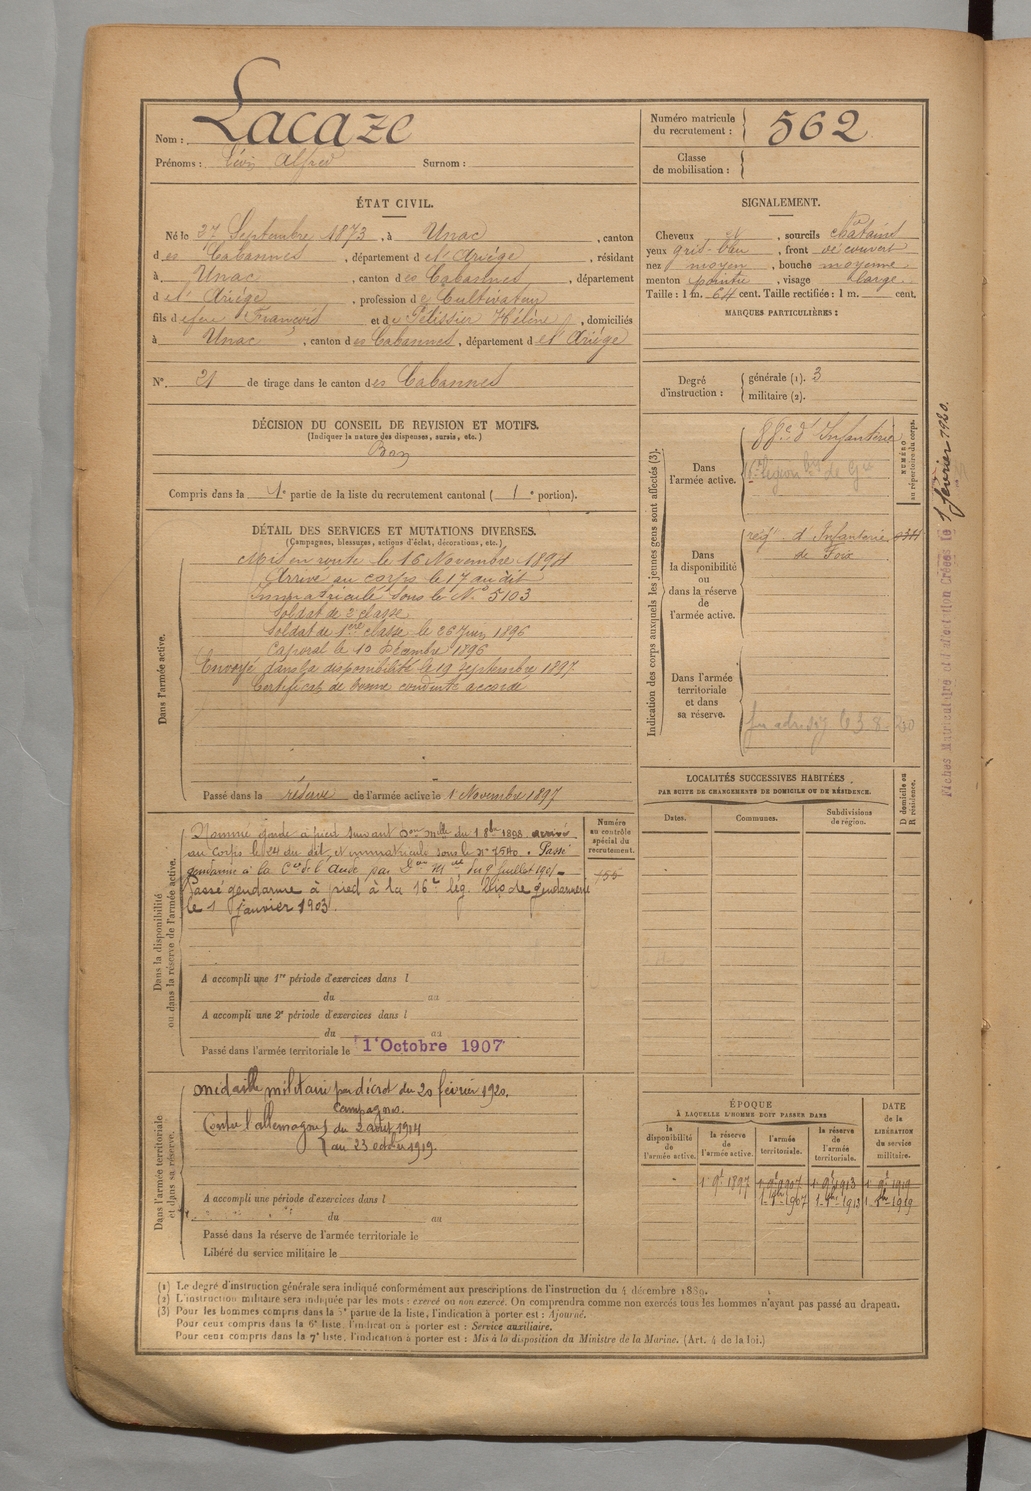 Nom : Lacaze
Prénoms : Léon Alfred Surnom :
Numéro matricule du recrutement : 562
Classe de mobilisation :
ÉTAT CIVIL.
Né le 27 Septembre 1873, à Unac, canton
des Cabannes, département de l'Ariège, résidant
à Unac, canton des Cabannes, département
de l'Ariège, profession de Cultivateur
fils de feu François et de Pélissier Hélène, domiciliés
à Unac, canton des Cabannes, département de l'Ariège
N° 21 de tirage dans le canton des Cabannes
SIGNALEMENT.
Cheveux et, sourcils chatains
yeux gris-bleu, front découvert
nez moyen, bouche moyenne
menton pointu, visage large
Taille : 1 m. 64 cent. Taille rectifiée : 1 m. cent.
MARQUES PARTICULIÈRES :
Degré d'instruction : générale (1). 3
militaire (2).
DÉCISION DU CONSEIL DE REVISION ET MOTIFS.
(Indiquer la nature des dispenses, sursis, etc.)
Bon
Compris dans la 1e partie de la liste du recrutement cantonal ( 1e portion).
DÉTAIL DES SERVICES ET MUTATIONS DIVERSES.
(Campagnes, blessures, actions d'éclat, décorations, etc.)
Dans l'armée active.
Mis en route le 16 Novembre 1894
Arrivé au corps le 17 au dit
Immatriculé sous le N° 5103
Soldat de 2e classe
Soldat de 1ère classe le 26 Juin 1896
Caporal le 10 Décembre 1896
Envoyé dans la disponibilité le 19 Septembre 1897
Certificat de bonne conduite accordé
Passé dans la réserve de l'armée active le 1 Novembre 1897
Indication des corps auxquels les jeunes gens sont affectés (3).
NUMÉRO au répertoire du corps.
Dans l'armée active.
d'Infanterie
16e légion
Dans la disponibilité ou dans la réserve de l'armée active.
reg d'Infanterie
de Foix
Dans l'armée territoriale et dans sa réserve.
LOCALITÉS SUCCESSIVES HABITÉES
PAR SUITE DE CHANGEMENTS DE DOMICILE OU DE RÉSIDENCE.
Dates. Communes. Subdivisions de région. D domicile ou R résidence.
Dans la disponibilité ou dans la réserve de l'armée active.
Numéro au contrôle spécial du recrutement.
Nommé garde à pied suivant Don mlle du 1 8bre 1898. arrivé
au corps le 24 du dit, et immatriculé sous le n° 7540. Passé
gendarme à la Cie de l'Aude par Don Mlle du 9 Juillet 1901
Passé gendarme à pied à la 16e lég. bis de gendarmerie
le 1 janvier 1903.
A accompli une 1re période d'exercices dans l
du au
A accompli une 2e période d'exercices dans l
du au
Passé dans l'armée territoriale le 1 Octobre 1907
Dans l'armée territoriale et dans sa réserve.
médaille militaire par décret du 20 février 1920.
Campagnes.
Contre l'allemagne du 2 août 1914
au 23 octobre 1919.
A accompli une période d'exercices dans l
du au
Passé dans la réserve de l'armée territoriale le
Libéré du service militaire le
ÉPOQUE À LAQUELLE L'HOMME DOIT PASSER DANS
la disponibilité de l'armée active. la réserve de l'armée active. l'armée territoriale. la réserve de l'armée territoriale. DATE de la LIBÉRATION du service militaire.
1 9bre 1897 1 9bre 1907 1 9bre 1913 1 9bre 1919
1 8bre 1907 1 8bre 1913 1 8bre 1919
(1) Le degré d'instruction générale sera indiqué conformément aux prescriptions de l'instruction du 4 décembre 1889.
(2) L'instruction militaire sera indiquée par les mots : exercé ou non exercé. On comprendra comme non exercés tous les hommes n'ayant pas passé au drapeau.
(3) Pour les hommes compris dans la 5e partie de la liste, l'indication à porter est : Ajourné.
Pour ceux compris dans la 6e liste, l'indication à porter est : Service auxiliaire.
Pour ceux compris dans la 7e liste, l'indication à porter est : Mis à la disposition du Ministre de la Marine. (Art. 4 de la loi.)
Fiches Matriculaire et d'actation Créées le 1 février 1920.